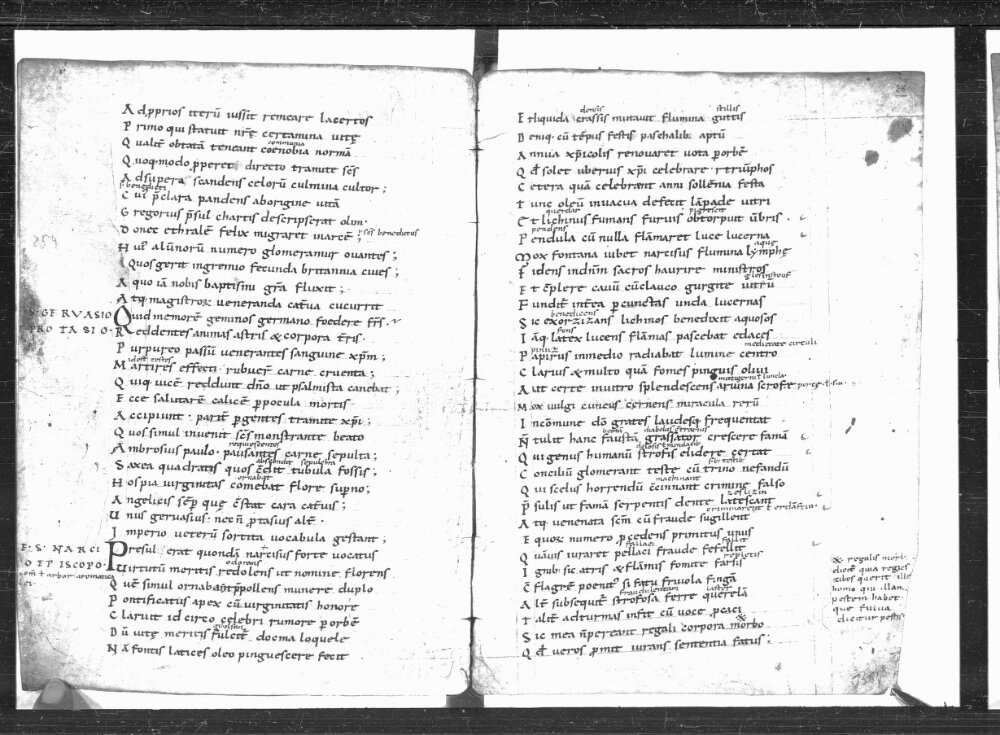 Ad pprios iteru iussit remeare lacertos
Primo qui statuit nrę certamina uitę
communia
Qualit obtatā teneant coenobia normā
Quoq· modo pperet directo tramite scs
Ad supera scandens celorū culmina cultor;
s. benedicti
Cui pclara pandens aborigine uitā
Gregorius psul chartis descripserat olim·
Donec ethrale felix migraret in arce;
s. scs benedictus
254
Hui alūnorū numero glomeramur ouantes;
Quos gerit in gremio fecunda britannia ciues;
A quo iā nobis baptismi gra fluxit;
Atq magistrox ueneranda caterua cucurrit
GERVASIO
PROTASIO·
Quid memorē geminos germano foedere frs·
Reddentes animas astris & corpora tris·
Purpureo passū uenerantes sanguine xpm;
Martires effecti· rubuer carne cruenta;
Quiq uice reddunt dno ut psalmista canebat;
Ecce salutare calice p pocula mortis
Accipiunt· parit pgentes tramite xpi;
Quos simul inuenit scs monstrante beato
requiescentes
Ambrosius paulo· pausantes carne sepulta;
abscondit sepulchra
Saxea quadratis quos cdit tubula fossis;
ornabat
Hospia uirginitas comebat flore supno;
Angelicis semp quę cstat cara cateruis;
Unus geruasius· necn ptasius alt·
Imperio ueterū sortita uocabula gestant;
S· NARCI
O EPISCOPO·
Presul erat quondā narcisus forte uocatus
arbor aromatica
odorans
Uirtutū meritis redolens ut nomine florens
Quē simul ornabant ppollens munere duplo
Pontificatus apex cū uirginitatis honore
Claruit id circo celebri rumore p orbe
Dū uitę meritis fulcit docma loquele
Nā fontis latices oleo pinguescere fecit
densis stillis
Et liquida crassis mutauit flumina guttis
Deniq· cū tepus festis paschalib aptū
Annua xpicolis renouaret uota p orbe
Qd solet uberius xpi celebrare· r triūphos
Cetera quā celebrant anni sollemnia festa
Tunc oleū in uacua defecit lāpade uitri
nigrescit
Et lichinus fumans furuis obtorpuit ūbris·
pendens
Pendula cū nulla flāmaret luce lucerna
aquę
Mox fontana iubet narcisus flumina lymphę
Fidens in dnm sacros haurire ministros
Et cplere cauū cūclauco gurgite uitrū
Fundit int ea p cunctas unda lucernas
benedicens
Sic exorzizans lichinos benedixit aquosos
fons
Iāq latex lucens flāmas pascebat edaces
medietate circuli
Papirus in medio radiabat lumine centro
Clarius & multo quā fomes pinguis oliui
Aut certe in uitro splendescens aruina scrofe
Mox uulgi cuneus cernens miracula rerū
In comune do grates laudesq frequentat
Ntulit hanc faustā grassator crescere famā
Qui genus humanū strofis elidere certat
Conciliū glomerant teste cū trino nefandū
machinant
Qui scelus horrendū ccinnant crimine falso
Psulis ut famā serpentis dente latescant
Atq uenenata scm cū fraude sugillent
E quox numero pcedens primitus unus
fallaci fallit
Quāuis iuraret pellaci fraude fefellit
repletis
Ignib· sic atris & flāmis fomite farsis
Cflagre poenit si fatu friuola fingā
fraudulentam
Alt subsequit strofosa ferre querelā
Talit ad iurmas infit cū uoce peaci
Sic mea npereant regali corpora morbo
Qd ueros pmit iurans sententia fatus;
regalis morb
dicit quia regies
cibos querit ille
homo qui illam
pestem habet
que fulua
dicitur pestis